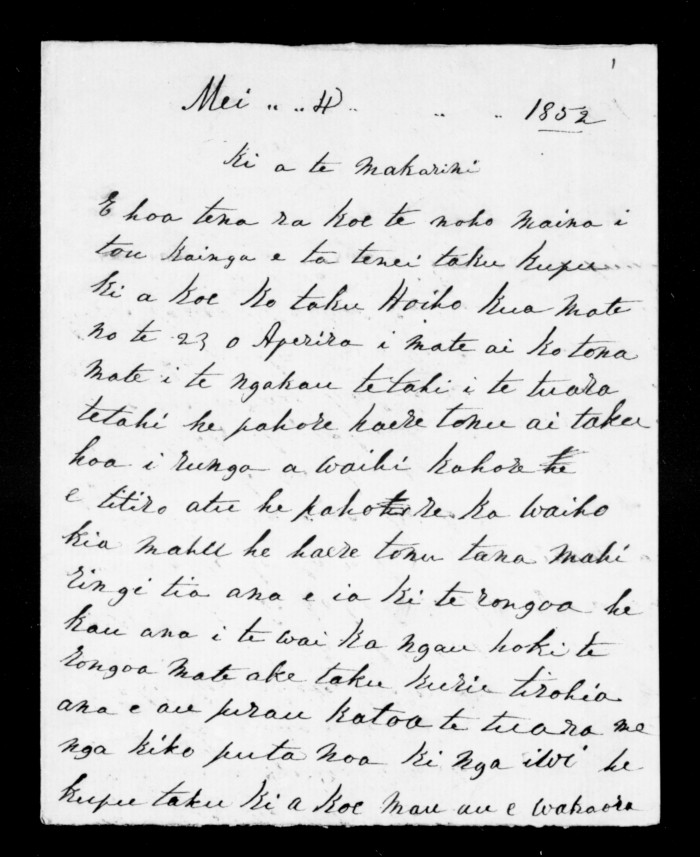 1
Mei " " 4 " " " 1852
Ki a te Makarini
E hoa tena ra koe te noho maina i
tou kainga e ta tenei taku kupu
ki a koe ko taku Hoiho kua mate
no te 23 o Aperira i mate ai ko tona
mate i te ngakau tetahi i te tuara
tetahi he pahore haere tonu ai taku
hoa i runga a waihi kahore he
e titiro atu he pahore ka waiho
kia mahu he haere tonu tana mahi
Ringi tia ana e ia ki te rongoa he
kau ana i te wai ka ngau hoki te
Rongoa mate ake taku kurie tirohia
ana e au pirau katoa te tuara me
nga kiko puta noa ki nga iwi he
kupu taku ki a koe mau au e wakaora